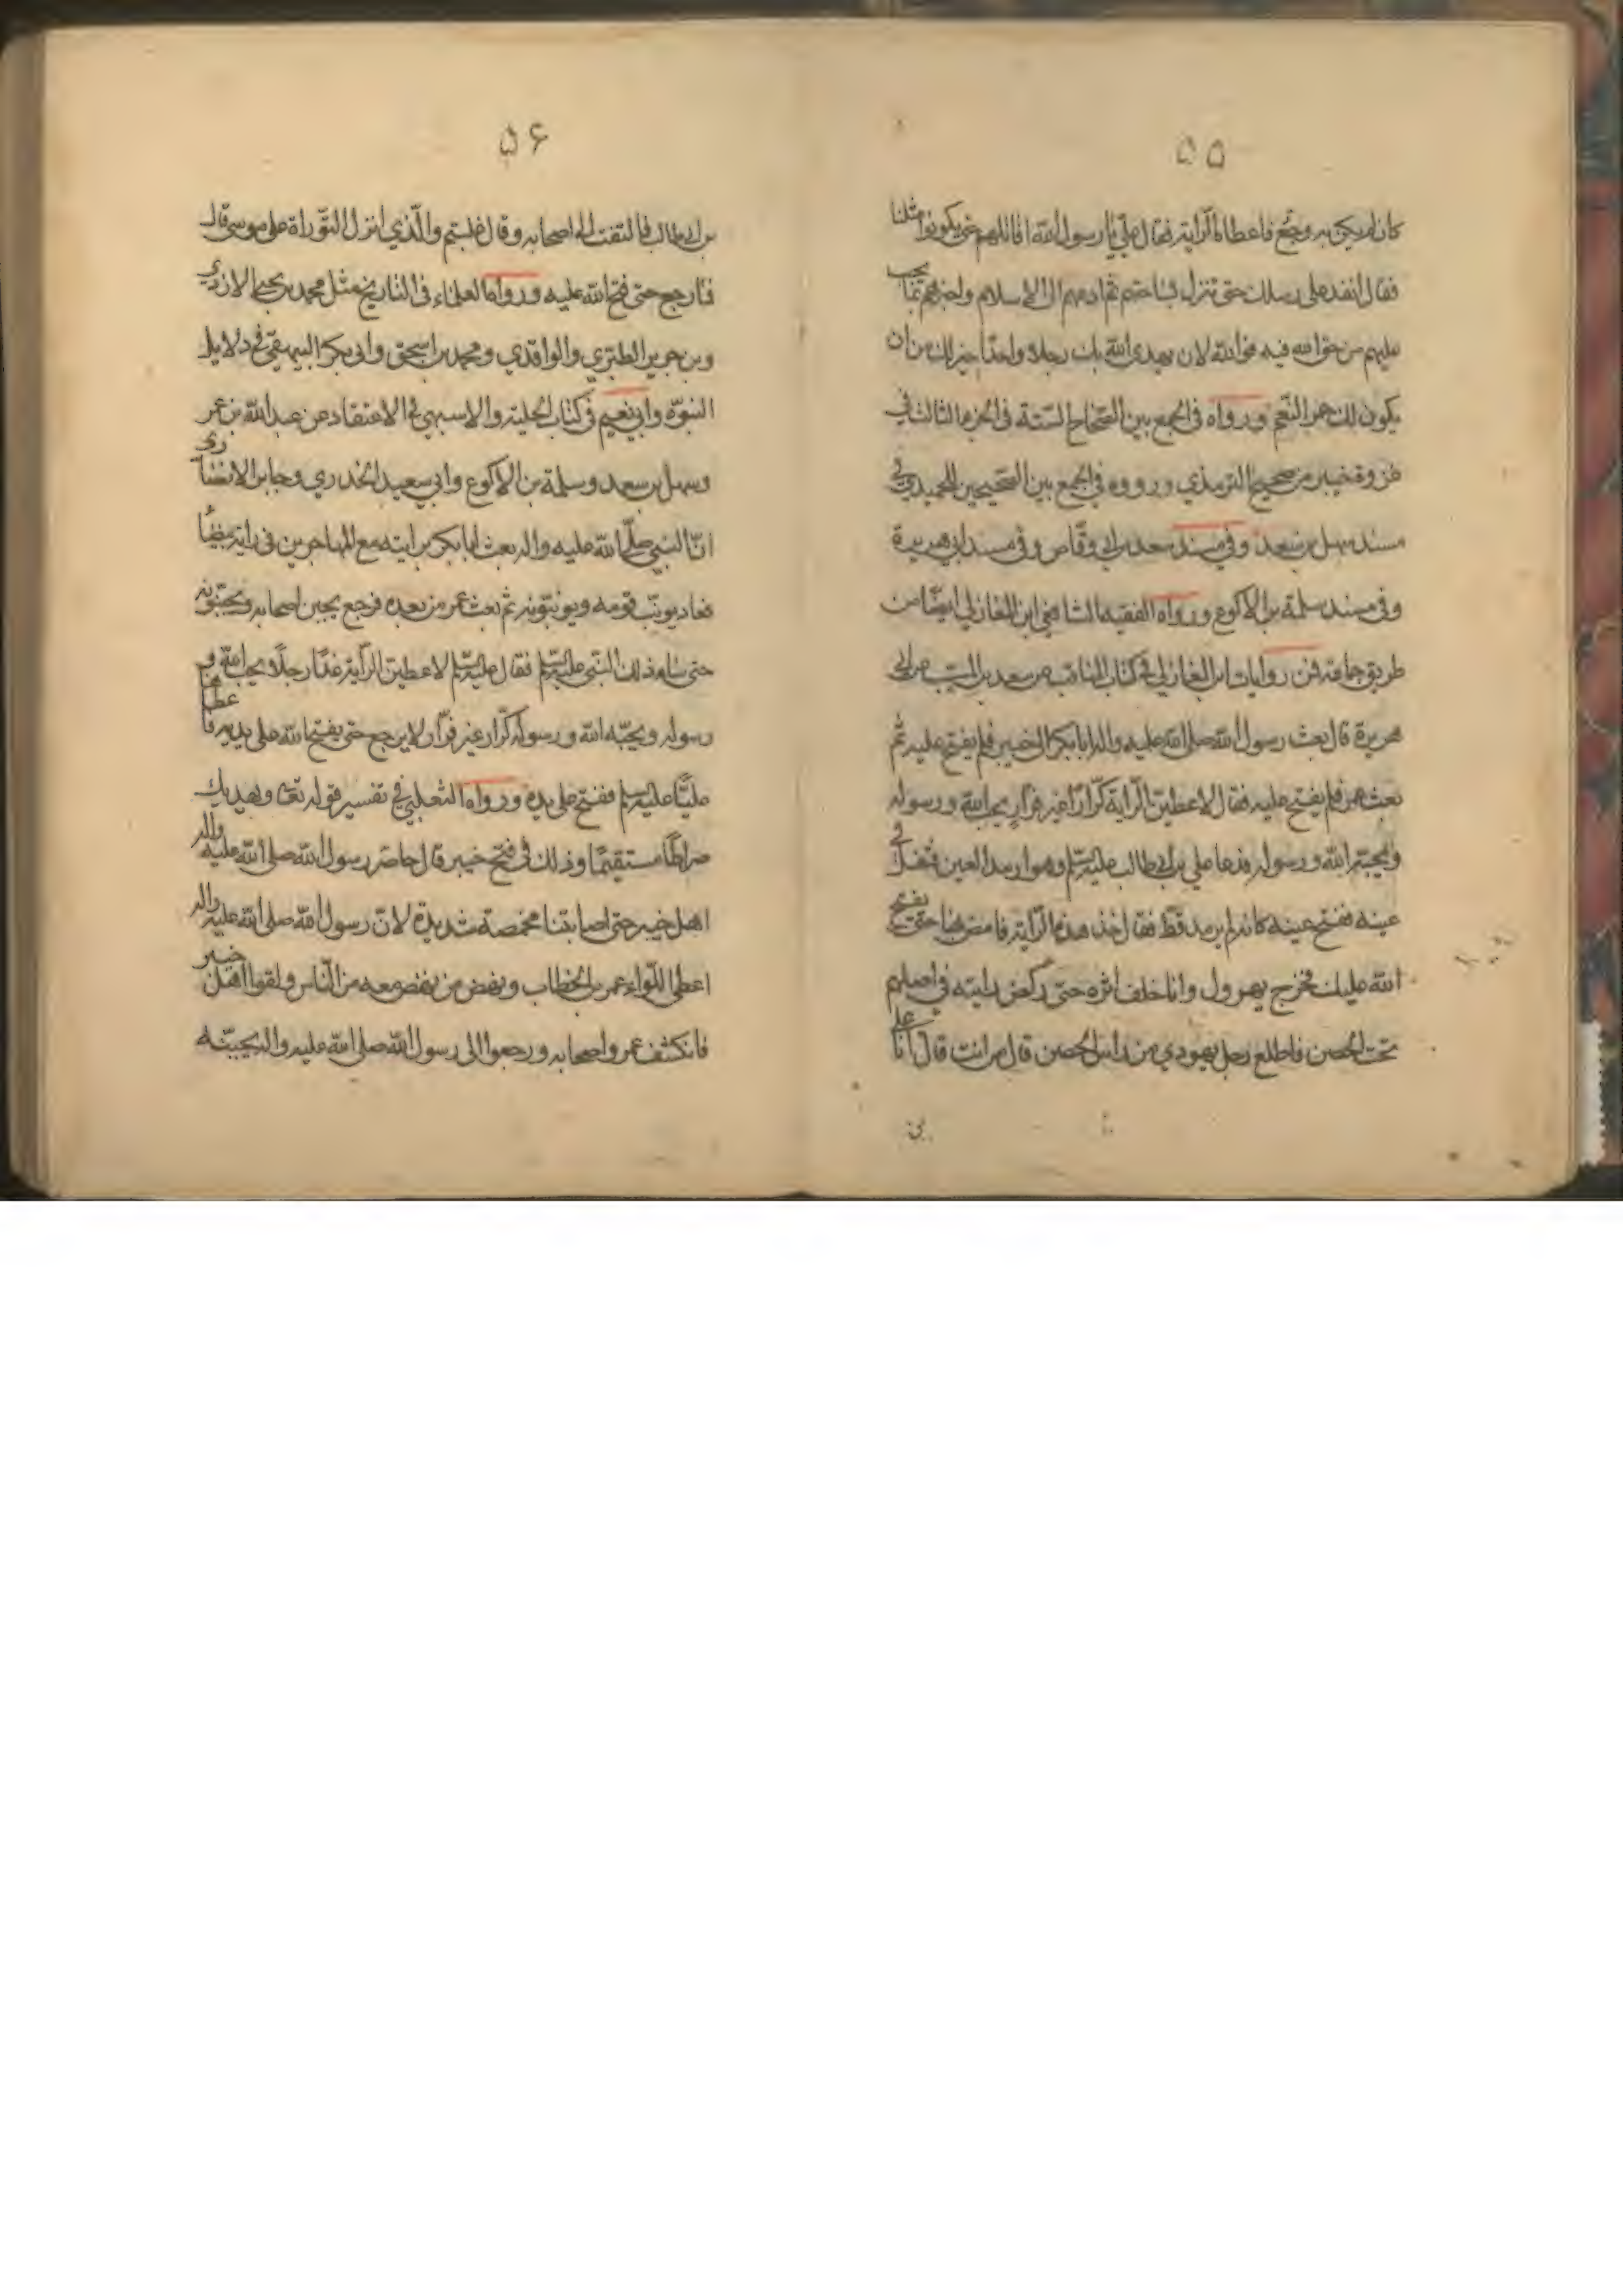 ۵۵
كان لم يكن به وجع فاعطاه الراية فقال علي يا رسول الله اقاتلهم حتى يكونوا مثلنا
فقال انفذ على رسلك حتى تنزل بساحتهم ثم ادعهم الى الاسلام واخبرهم بما يجب
عليهم من حق الله فيه فوالله لان يهدى الله بك رجلا واحدا خير لك من ان
يكون لك حمر النعم ورواه فى الجمع بين الصحاح الستة فى الجزء الثالث في
غزوة خيبر من صحيح الترمذي ورووه في الجمع بين الصحيحين للحميدي في
مسند سهل بن سعد وفي مسند سعد بن ابي وقاص وفى مسند ابي هريرة
وفى مسند سلمة بن الاكوع ورواه الفقيه الشافعي ابن المغازلي ايضا من
طريق جماعة فمن روايات ابن المغازلي في كتاب المناقب عن سعيد بن المسيب عن ابي
هريرة قال بعث رسول الله صلى الله عليه واله ابا بكر الى خيبر فلم يفتح عليه ثم
بعث عمر فلم يفتح عليه فقال لاعطين الراية كرارا غير فرار يحب الله ورسوله
ويحبه الله ورسوله فدعا علي بن ابي طالب عليه السلم وهو ارمد العين فتفل في
عينه ففتح عينه كانه لم يرمد قط فقال خذ هذه الراية فامض بها حتى يفتح
الله عليك فخرج يهرول وانا خلف اثره حتى ركض رايته في اصلهم
تحت الحصن فاطلع رجل يهودي من راس الحصن قال من انت قال انا على
بن
۵۶
بن ابيطالب فالتفت الى اصحابه وقال غلبتم والذي انزل التوراة على موسى قال
فما رجع حتى فتح الله عليه ورواه العلماء فى التاريخ مثل محمد بن يحيى الازدي
وبن جرير الطبري والواقدي ومحمد بن اسحق وابى بكر البيهقي في دلايل
النبوة وابي نعيم في كتاب الحلية والاسبهي في الاعتقاد عن عبد الله بن عمر
وسهل بن سعد وسلمة بن الاكوع وابي سعيد الخدري وجابر الانصارى
ان النبي صلى الله عليه واله بعث ابا بكر برايته مع المهاجرين فى راية بيضا
فعاد يونب قومه ويونبونه ثم بعث عمر من بعده فرجع يجبن اصحابه ويجبنونه
حتى ساء ذلك النبي عليه السلم فقال عليه السلم لاعطين الراية غدا رجلا يحب الله و
رسوله ويحبه الله ورسوله كرار غير فرار لا يرجع حتى يفتح الله على يديه فاعطاها
عليا عليه السلم ففتح على يده ورواه الثعلبي في تفسير قوله تعا ويهديك
صراطا مستقيما وذلك فى فتح خيبر قال حاصر رسول الله صلى الله عليه واله
اهل خيبر حتى اصابتنا مخمصة شديدة لان رسول الله صلى الله عليه واله
اعطى اللواء عمر بن الخطاب ونهض من نهض معه من الناس ولقوا اهل خيبر
فانكشف عمر واصحابه ورجعوا الى رسول الله صلى الله عليه واله يجبنه